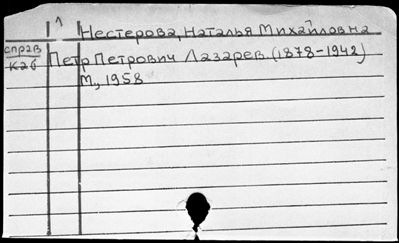 Нестерова, Наталья Михайловна
справ
каб
Петр Петрович Лазарев. (1878-1942)
М., 1958